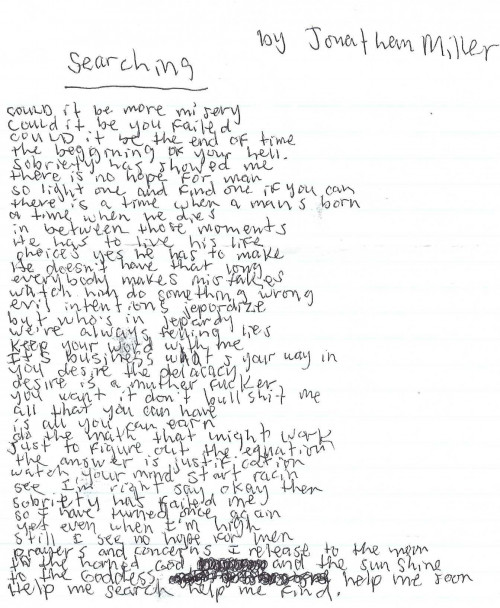 by Jonathan Miller
Searching
could it be more misery
Could it be you Failed
COULD it be the end of time
the beggining of your hell.
Sobriety has showed me
there is no hope for man
so light one and find one if you can
there is a time when a man's born
a time when he dies
in between those moments
He has to live his life
choices yes he has to make
He doesn't have that long
everybody makes mistakes
which him do something wrong
evil intentions jepordize
but who's in jepardy
we're always telling lies
Keep your word with me
It's business what's your way in
you desire the delacacy
desire is a muther fucker
you want it don't bullshit me
all that you can have
is all you can earn
do the math that might work
Just to figure out the equation
the answer is justification
watch your mind start racin
see I'm right say okay then
sobriety has failed me
so I have turned once again
yet even when I'm high
still I see no hope for men
prayers and concerns I release to the moon
to the horned God and the sun shine
to the Goddess help me soon
Help me search help me find.